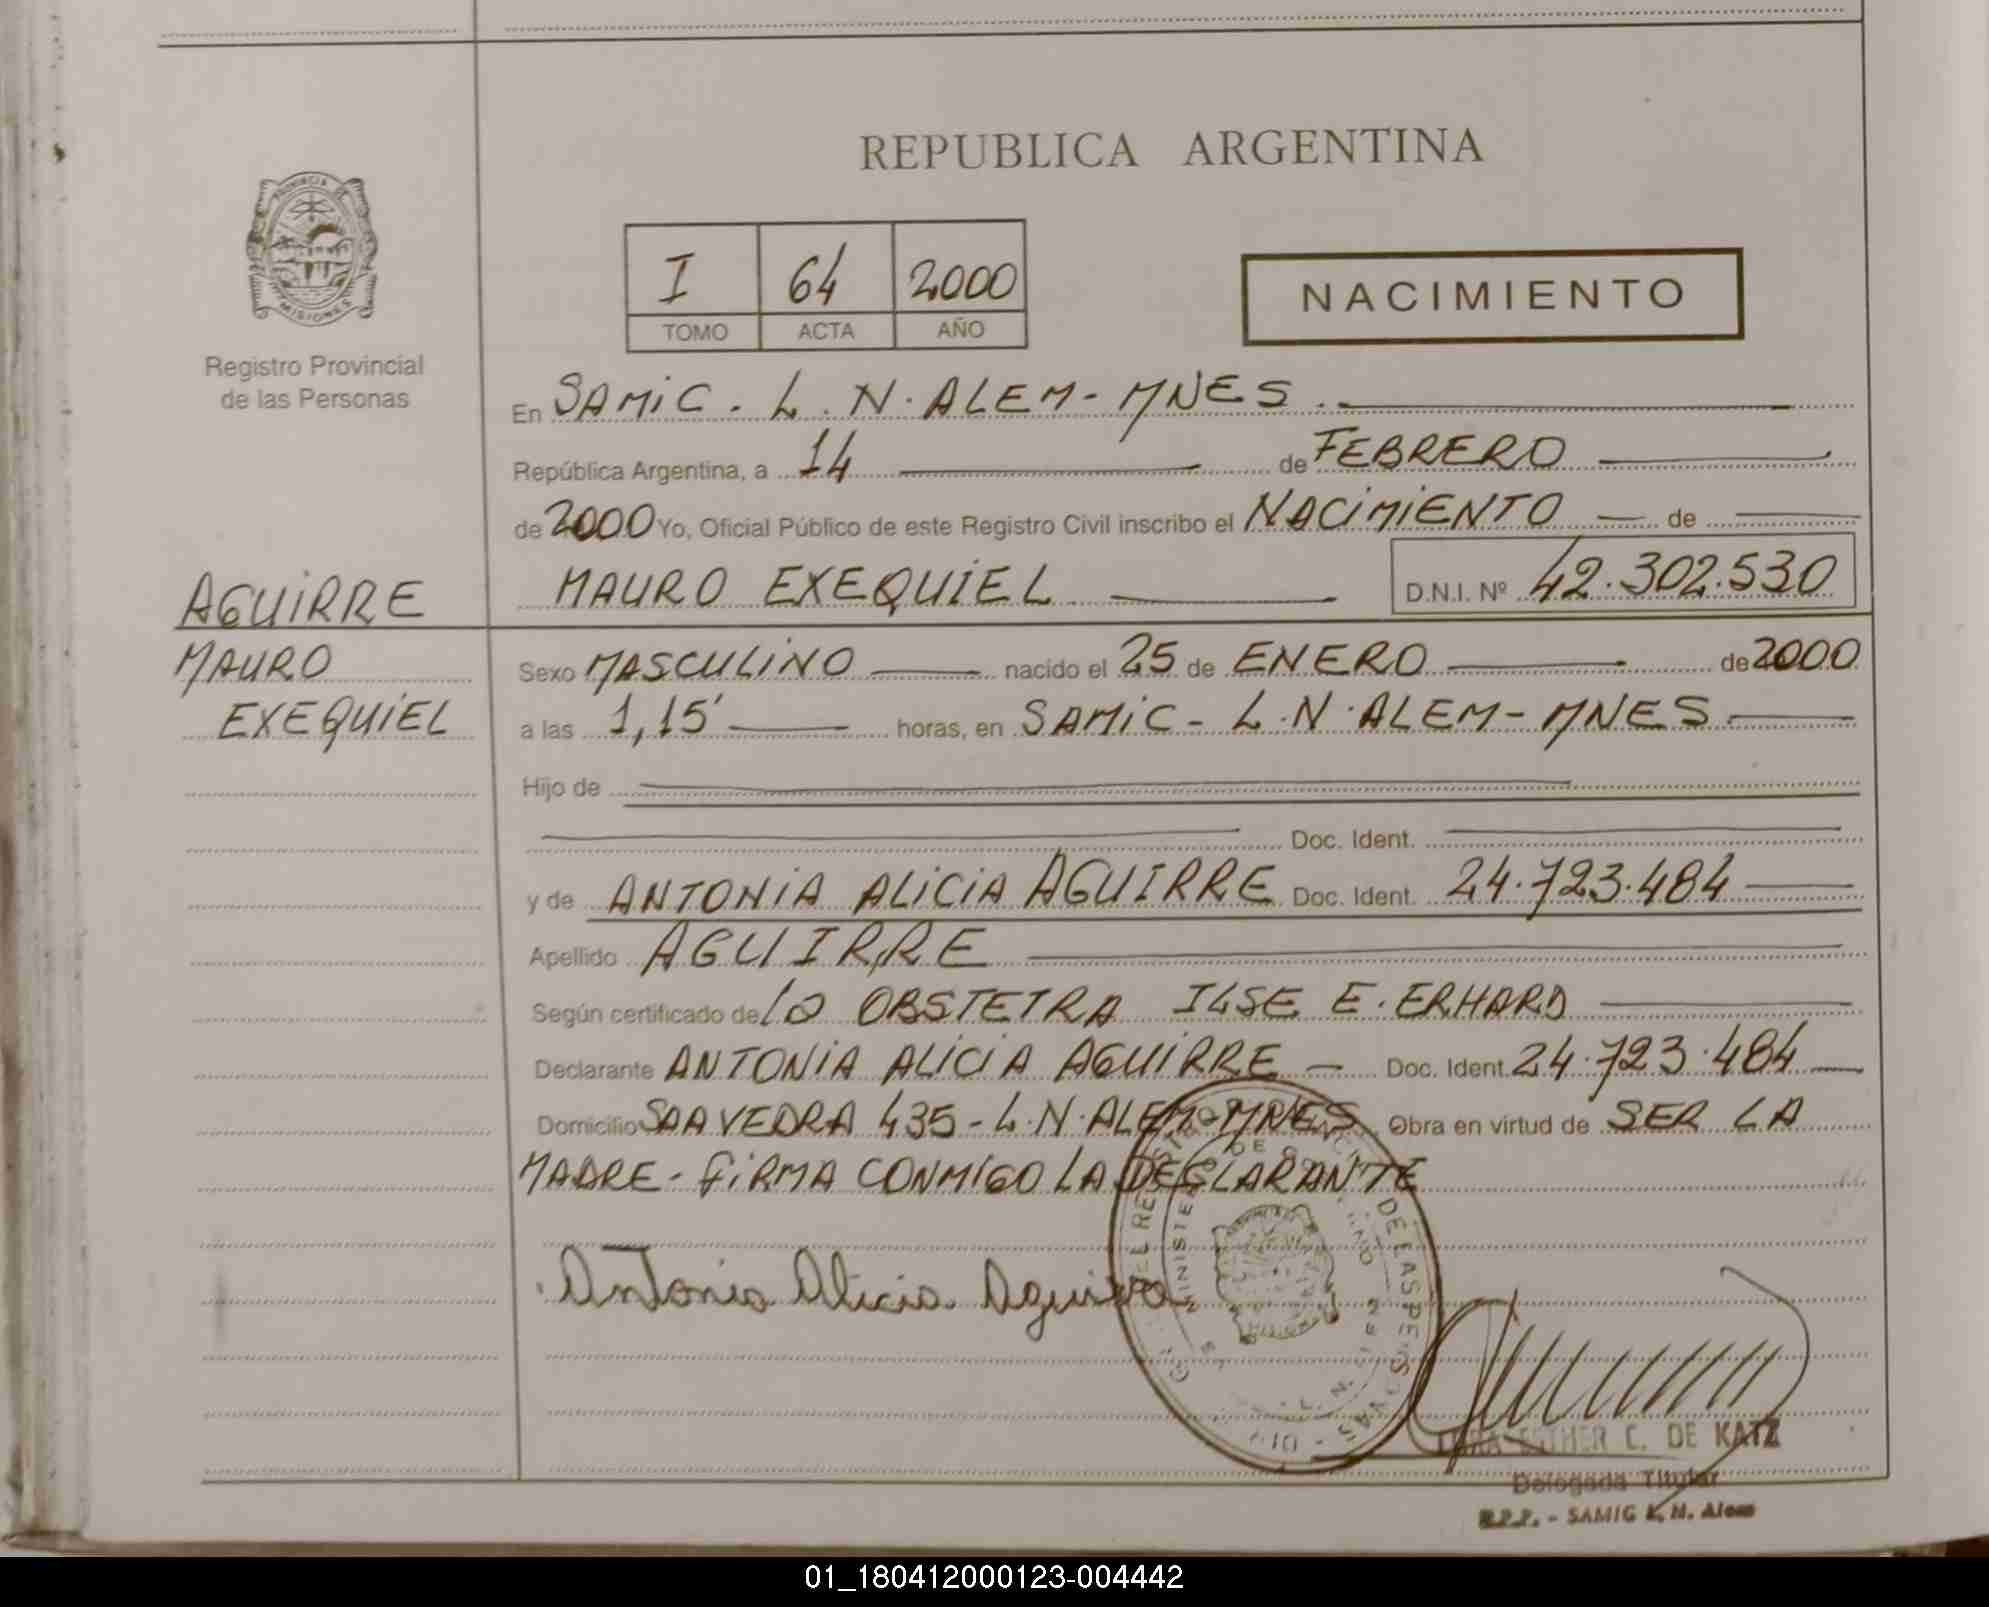 REPUBLICA ARGENTINA
PROVINCIA DE
MISIONES
Registro Provincial
de las Personas
I 64 2000
TOMO ACTA AÑO
NACIMIENTO
En SAMIC. L.N. ALEM - MNES.
República Argentina, a 14 de FEBRERO
de 2000 Yo, Oficial Público de este Registro Civil inscribo el NACIMIENTO de
MAURO EXEQUIEL D.N.I. Nº 42.302.530
AGUIRRE
MAURO
EXEQUIEL
Sexo MASCULINO nacido el 25 de ENERO de 2000
a las 1,15' horas, en SAMIC - L.N. ALEM - MNES
Hijo de
Doc. Ident.
y de ANTONIA ALICIA AGUIRRE Doc. Ident. 24.723.484
Apellido AGUIRRE
Según certificado de la OBSTETRA ILSE E. ERHARD
Declarante ANTONIA ALICIA AGUIRRE Doc. Ident. 24.723.484
Domicilio SAAVEDRA 435 - L.N. ALEM - MNES Obra en virtud de SER LA
MADRE - FIRMA CONMIGO LA DECLARANTE
Antonia Alicia Aguirre
DE LAS PERSONAS
ESTHER C. DE KATZ
Delegada Titular
R.P.P. - SAMIC L. N. Alem
01_180412000123-004442